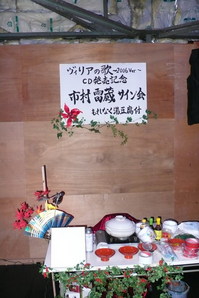 ヴィリアの歌〜2006 Ver〜
CD発売記念
市村雷蔵 サイン会
もれなく湯豆腐付